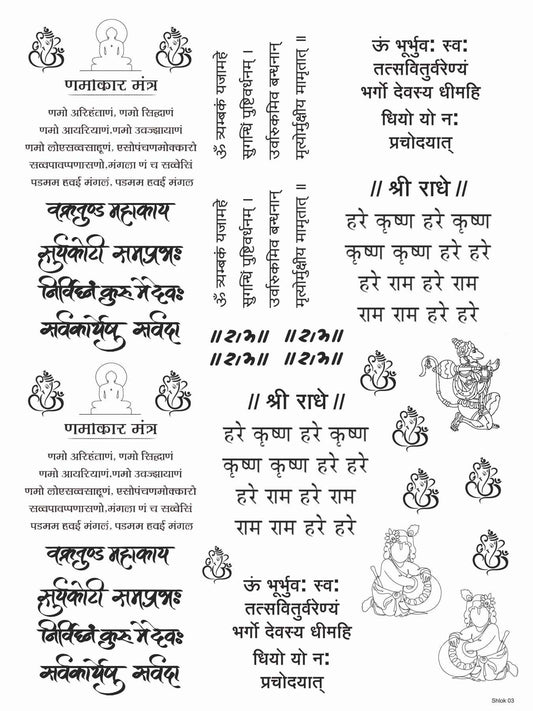 णमाकार मंत्र
णमो अरिहंताणं, णमो सिद्धाणं
णमो आयरियाणं.णमो उवज्झायाणं
णमो लोएसव्वसाहूणं. एसोपंचणमोक्कारो
सव्वपावप्पणासणो.मंगला णं च सव्वेसिं
पडमम हवई मंगलं. पडमम हवई मंगलं
वक्रतुण्ड महाकाय
सुर्यकोटी समप्रभः
निर्विघ्नं कुरु मे देवः
सर्वकार्येषु सर्वदा
ॐ त्र्यम्बकं यजामहे
सुगन्धिं पुष्टिवर्धनम् ।
उर्वारुकमिव बन्धनान्
मृत्योर्मुक्षीय मामृतात् ॥
ॐ त्र्यम्बकं यजामहे
सुगन्धिं पुष्टिवर्धनम् ।
उर्वारुकमिव बन्धनान्
मृत्योर्मुक्षीय मामृतात् ॥
ऊं भूर्भुव: स्व:
तत्सवितुर्वरेण्यं
भर्गो देवस्य धीमहि
धियो यो न:
प्रचोदयात्
// श्री राधे //
हरे कृष्ण हरे कृष्ण
कृष्ण कृष्ण हरे हरे
हरे राम हरे राम
राम राम हरे हरे
॥राम॥ ॥राम॥
॥राम॥ ॥राम॥
णमाकार मंत्र
णमो अरिहंताणं, णमो सिद्धाणं
णमो आयरियाणं.णमो उवज्झायाणं
णमो लोएसव्वसाहूणं. एसोपंचणमोक्कारो
सव्वपावप्पणासणो.मंगला णं च सव्वेसिं
पडमम हवई मंगलं. पडमम हवई मंगलं
वक्रतुण्ड महाकाय
सुर्यकोटी समप्रभः
निर्विघ्नं कुरु मे देवः
सर्वकार्येषु सर्वदा
// श्री राधे //
हरे कृष्ण हरे कृष्ण
कृष्ण कृष्ण हरे हरे
हरे राम हरे राम
राम राम हरे हरे
ऊं भूर्भुव: स्व:
तत्सवितुर्वरेण्यं
भर्गो देवस्य धीमहि
धियो यो न:
प्रचोदयात्
Shlok 03